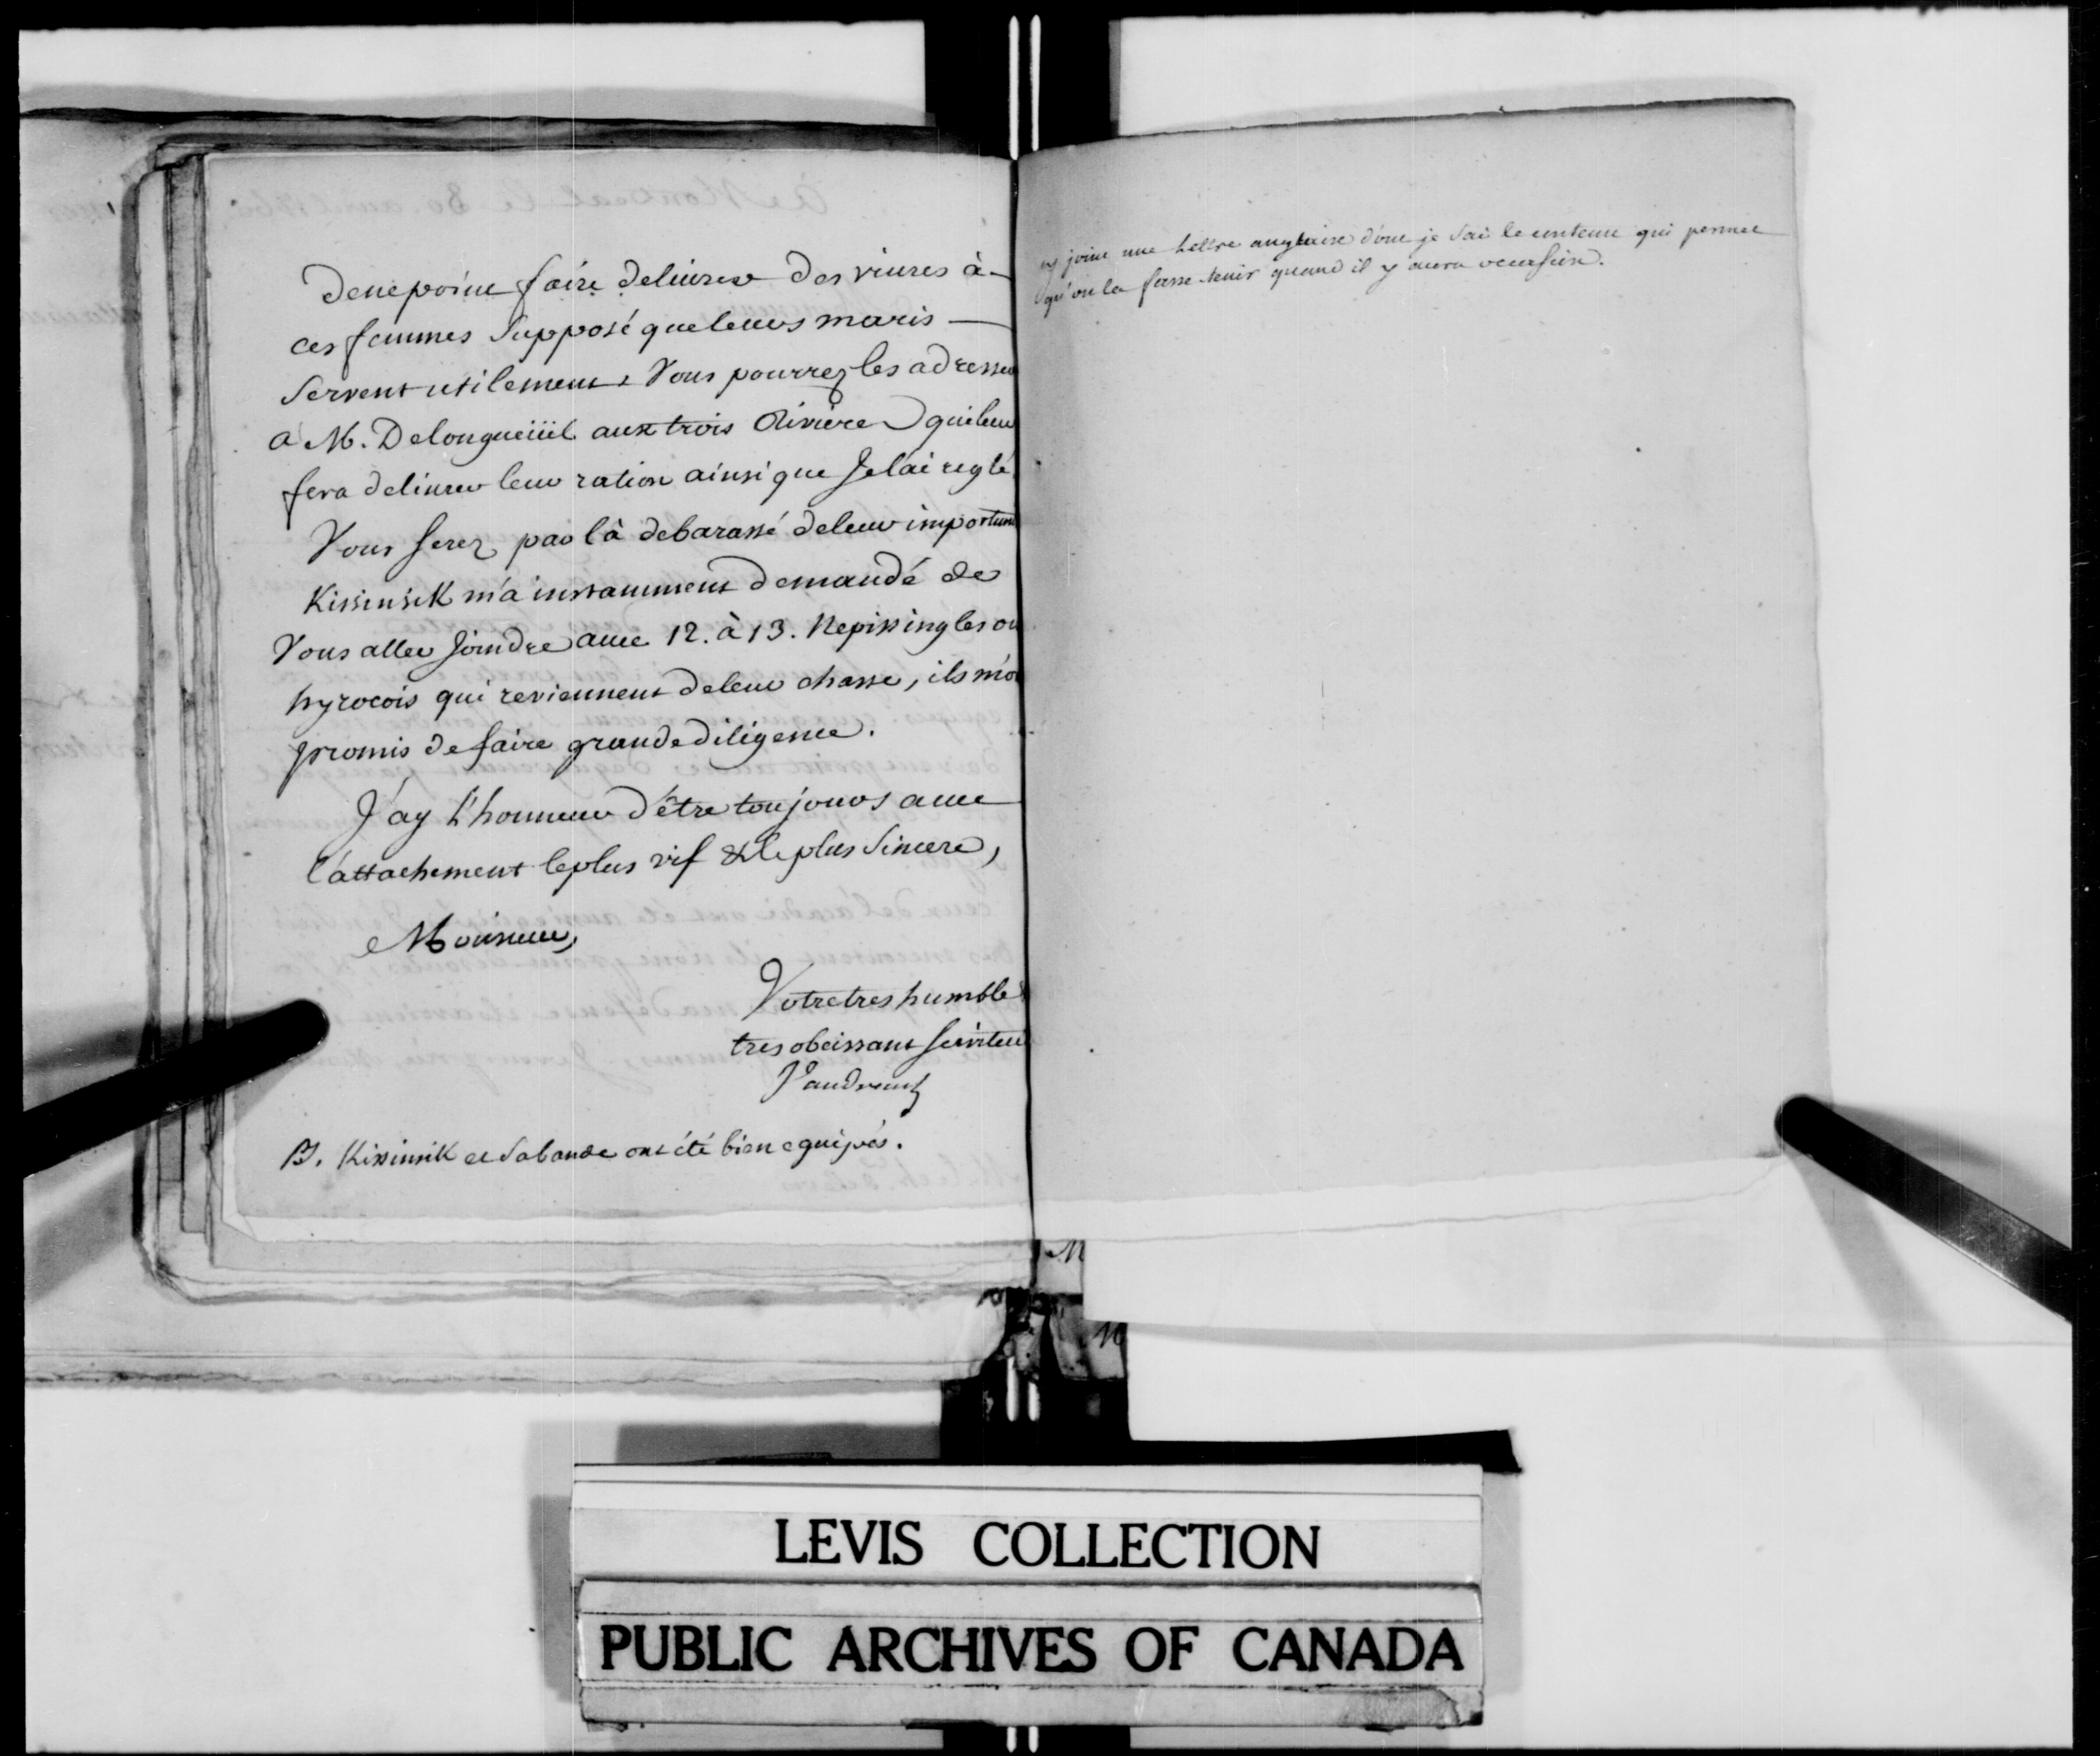 de ne point faire delivrer des vivres à
ces femmes Supposé que leurs maris
Servent utilement, Vous pourrez les adresser
a M. Delongueüil aux trois Riviere qui leur
fera delivrer leur ration ainsi que Je l'ai reglé
Vous serez par là debarassé de leur importun
Kisensik m'a instamment demandé de
Vous aller Joindre avec 12. à 13. Nepissingles ou
hyrocois qui reviennent de leur chasse, ils m'o
promis de faire grande diligence.
J'ay l'honneur d'être toujours avec
l'attachement le plus vif & le plus Sincere,
Monsieur,
Votre tres humble
tres obeissant serviteu
Vaudreuil
Kisinsik et Sa bande ont été bien equipés.
cy joint une Lettre anglaise dont je Sai le contenu qui permet
qu'on la fasse tenir quand il y aura occasion.
M
M
LEVIS COLLECTION
PUBLIC ARCHIVES OF CANADA